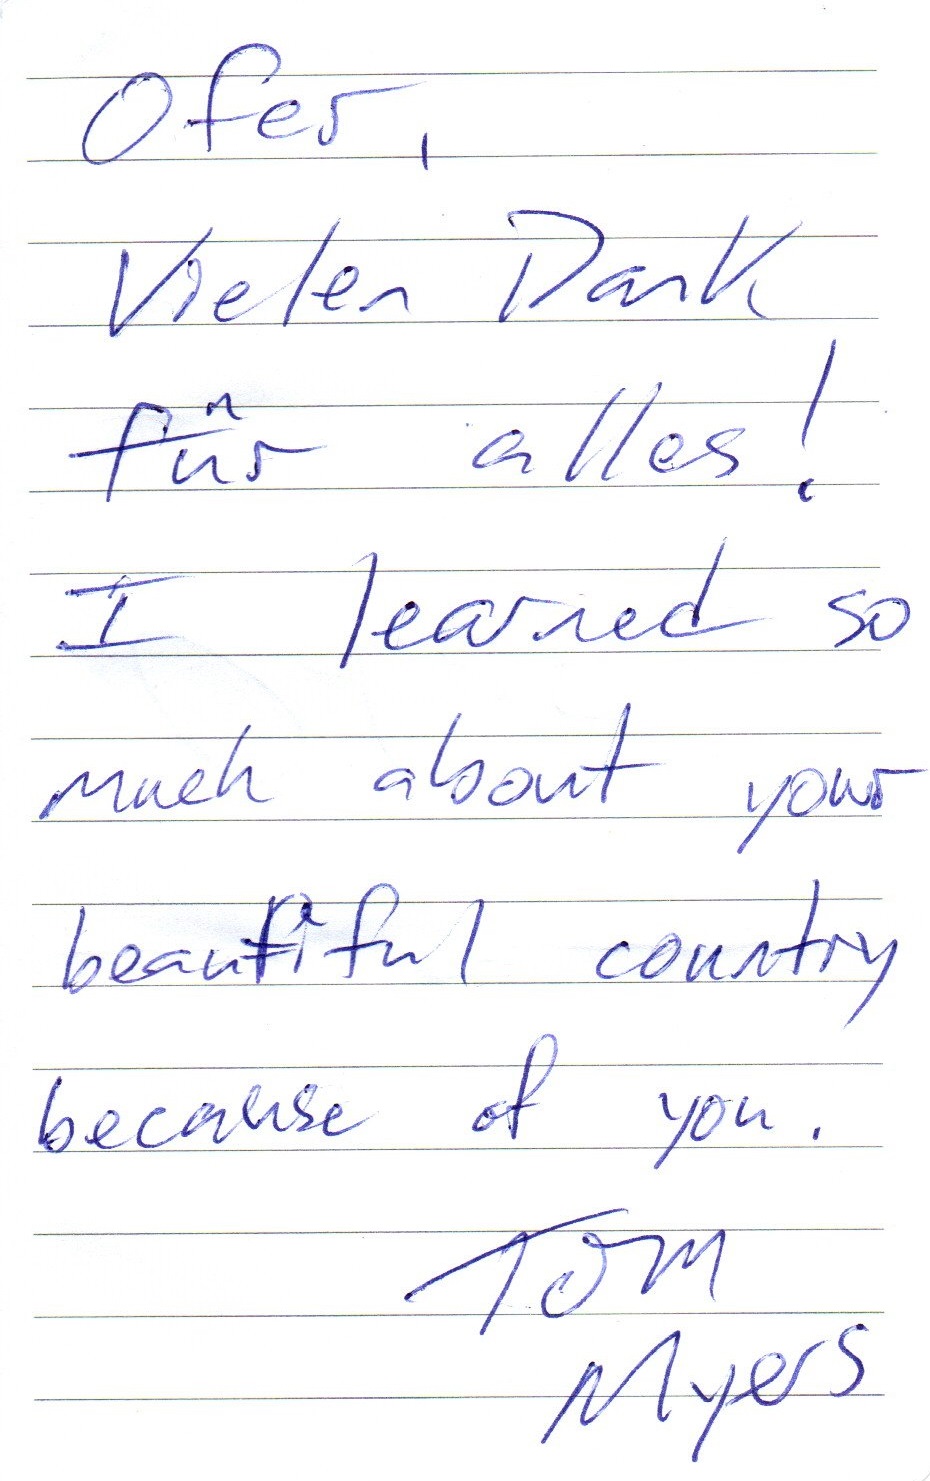 Ofer,
Vielen Dank
für alles!
I learned so
much about your
beautiful country
because of you.
Tom
Myers